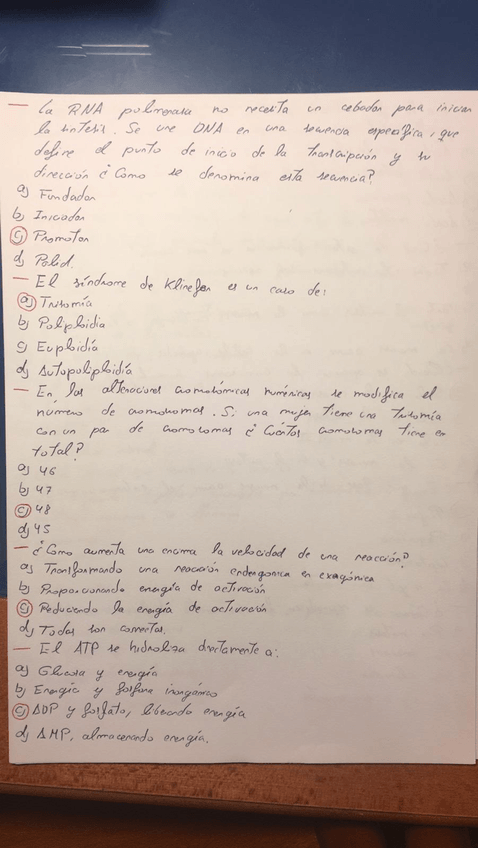 — La RNA polimerasa no necesita un cebador para iniciar
la síntesis. Se une DNA en una secuencia específica, que
define el punto de inicio de la transcripción y su
dirección ¿Como se denomina esta secuencia?
a) Fundador
b) Iniciador
c) Promotor
d) Polid.
— El síndrome de Klinefer es un caso de:
a) Trisomía
b) Poliploidia
c) Euploidía
d) Autopoliploidía
— En las alteraciones cromosómicas numéricas se modifica el
número de cromosomas. Si una mujer tiene una trisomía
con un par de cromosomas ¿Cuántos cromosomas tiene en
total?
a) 46
b) 47
c) 48
d) 45
— ¿Como aumenta una enzima la velocidad de una reacción?
a) Transformando una reacción endergonica en exagónica
b) Proporcionando energía de activación
c) Reduciendo la energía de activación
d) Todas son correctas.
— El ATP se hidroliza directamente a:
a) Glucosa y energía
b) Energía y fósforo inorgánico
c) ADP y fosfato, liberando energía
d) AMP, almacenando energía.